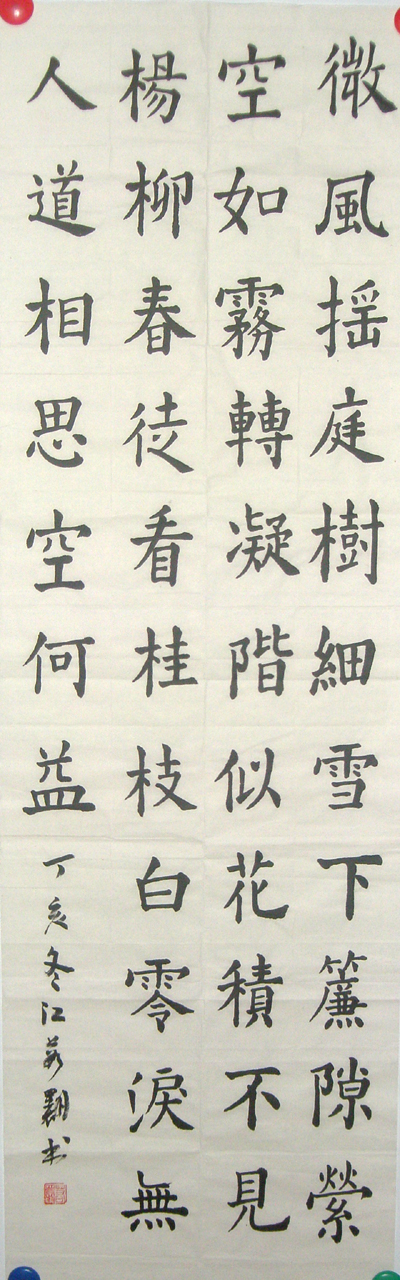 微風揺庭樹細雪下簾隙縈
空如霧轉凝階似花積不見
楊柳春徒看桂枝白零淚無
人道相思空何益
丁亥冬江
書